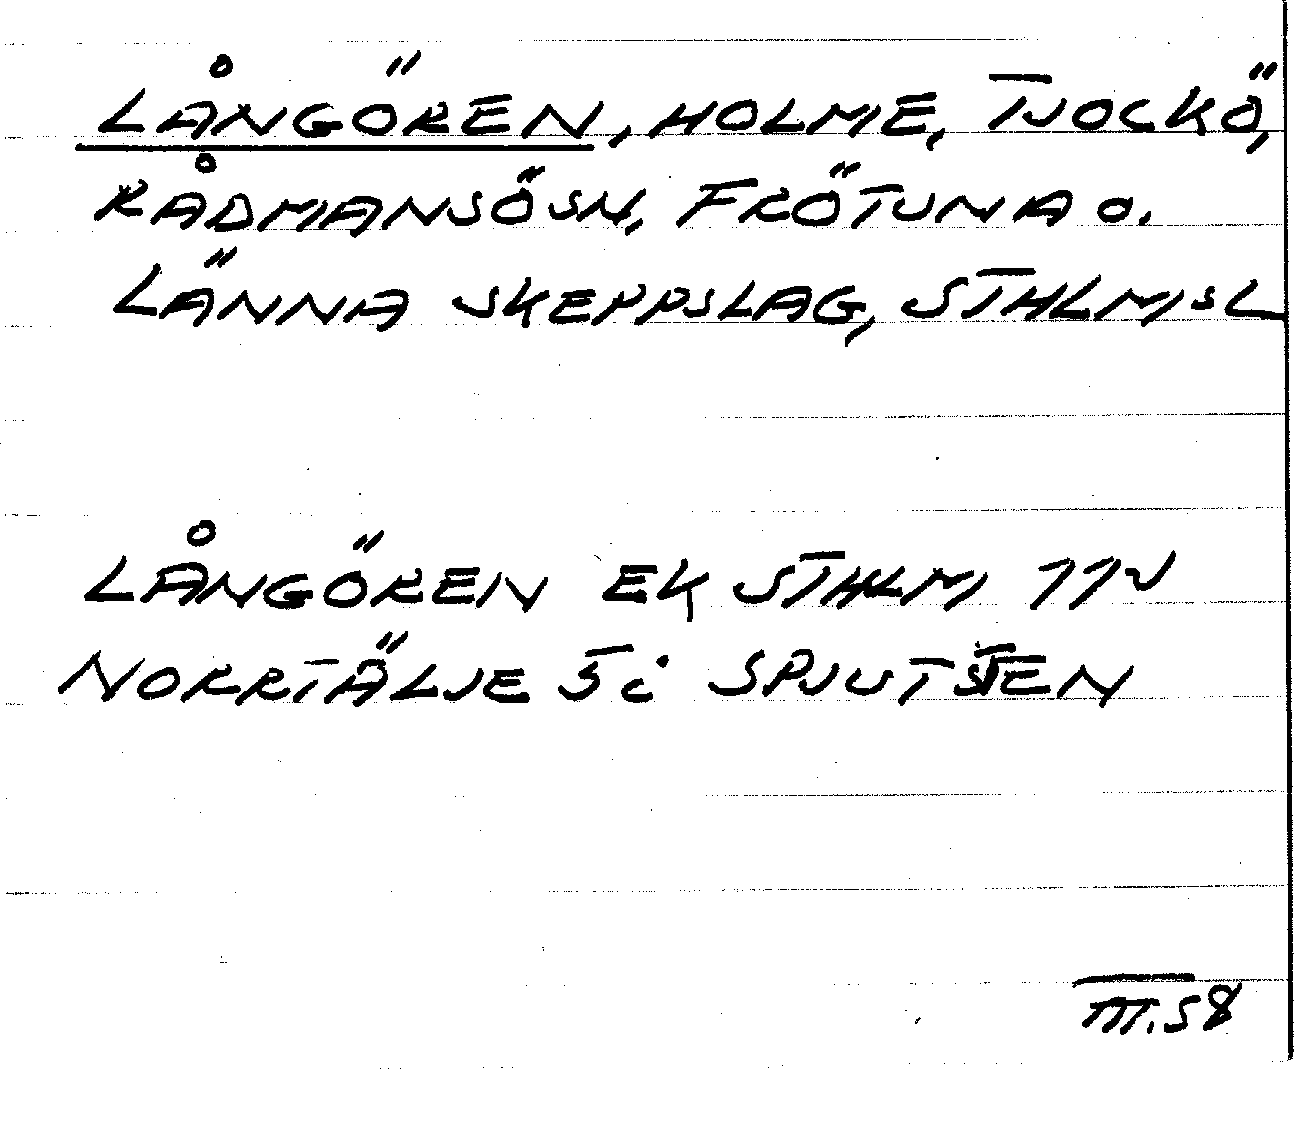 LÅNGÖREN, HOLME, TJOCKÖ,
RÅDMANSÖSN, FRÖTUNA o.
LÄNNA SKEPPSLAG, STHLMSL
LÅNGÖREN EK STHLM 11N
NORRTÄLJE 5c SPJUTSTEN
III.58